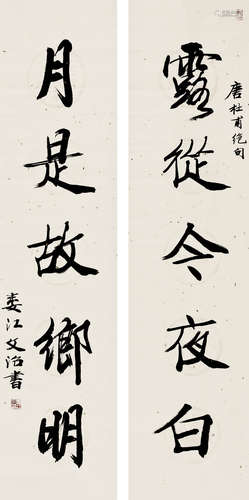 唐杜甫绝句
露從今夜白
月是故鄉明
娄江文治書